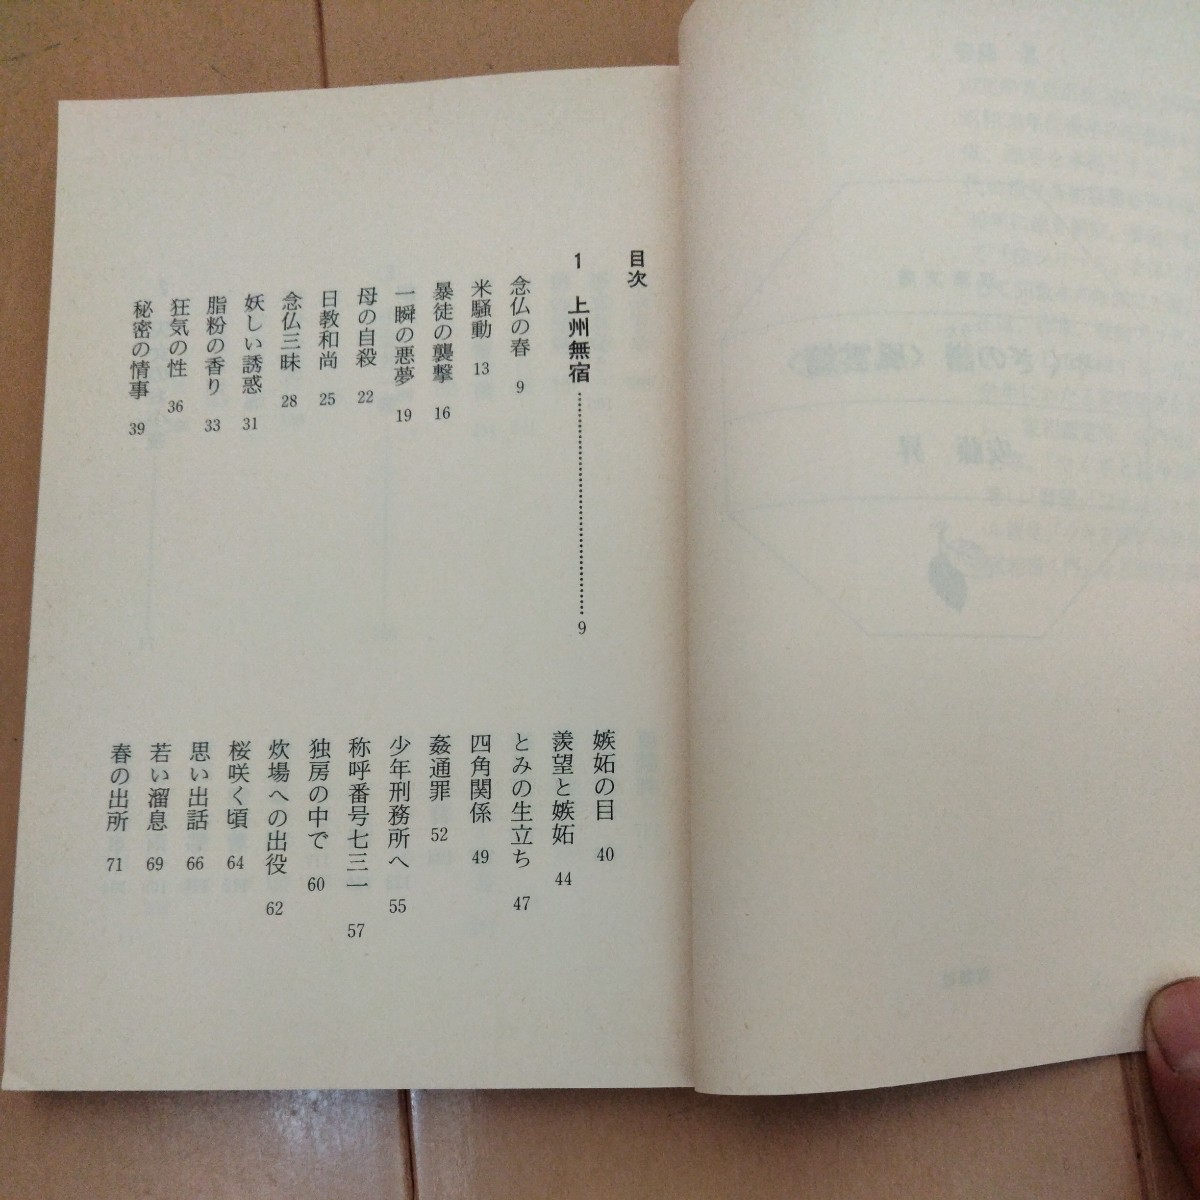 目次
1 上州無宿 9
念仏の春 9
米騒動 13
暴徒の襲撃 16
一瞬の悪夢 19
母の自殺 22
日教和尚 25
念仏三昧 28
妖しい誘惑 31
脂粉の香り 33
狂気の性 36
秘密の情事 39
嫉妬の目 40
羨望と嫉妬 44
とみの生立ち 47
四角関係 49
姦通罪 52
少年刑務所へ 55
称呼番号七三一 57
独房の中で 60
炊場への出役 62
桜咲く頃 64
思い出話 66
若い溜息 69
春の出所 71
安藤 昇